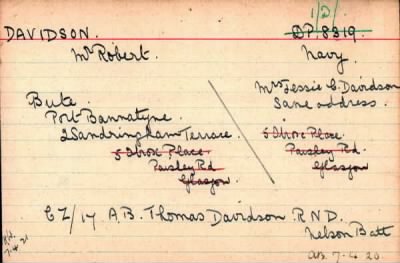 1/D/
DAVIDSON. DP/8319.
Mr Robert. Navy.
Mrs Jessie C. Davidson
Bute. Same address.
Port Bannatyne.
2 Sandringham Terrace. 5 Ibrox Place.
5 Ibrox Place. Paisley Rd.
Paisley Rd Glasgow
Glasgow.
CZ/17 A.B. Thomas Davidson R.N.D.
Nelson Batt
7.4.21
7.4.20